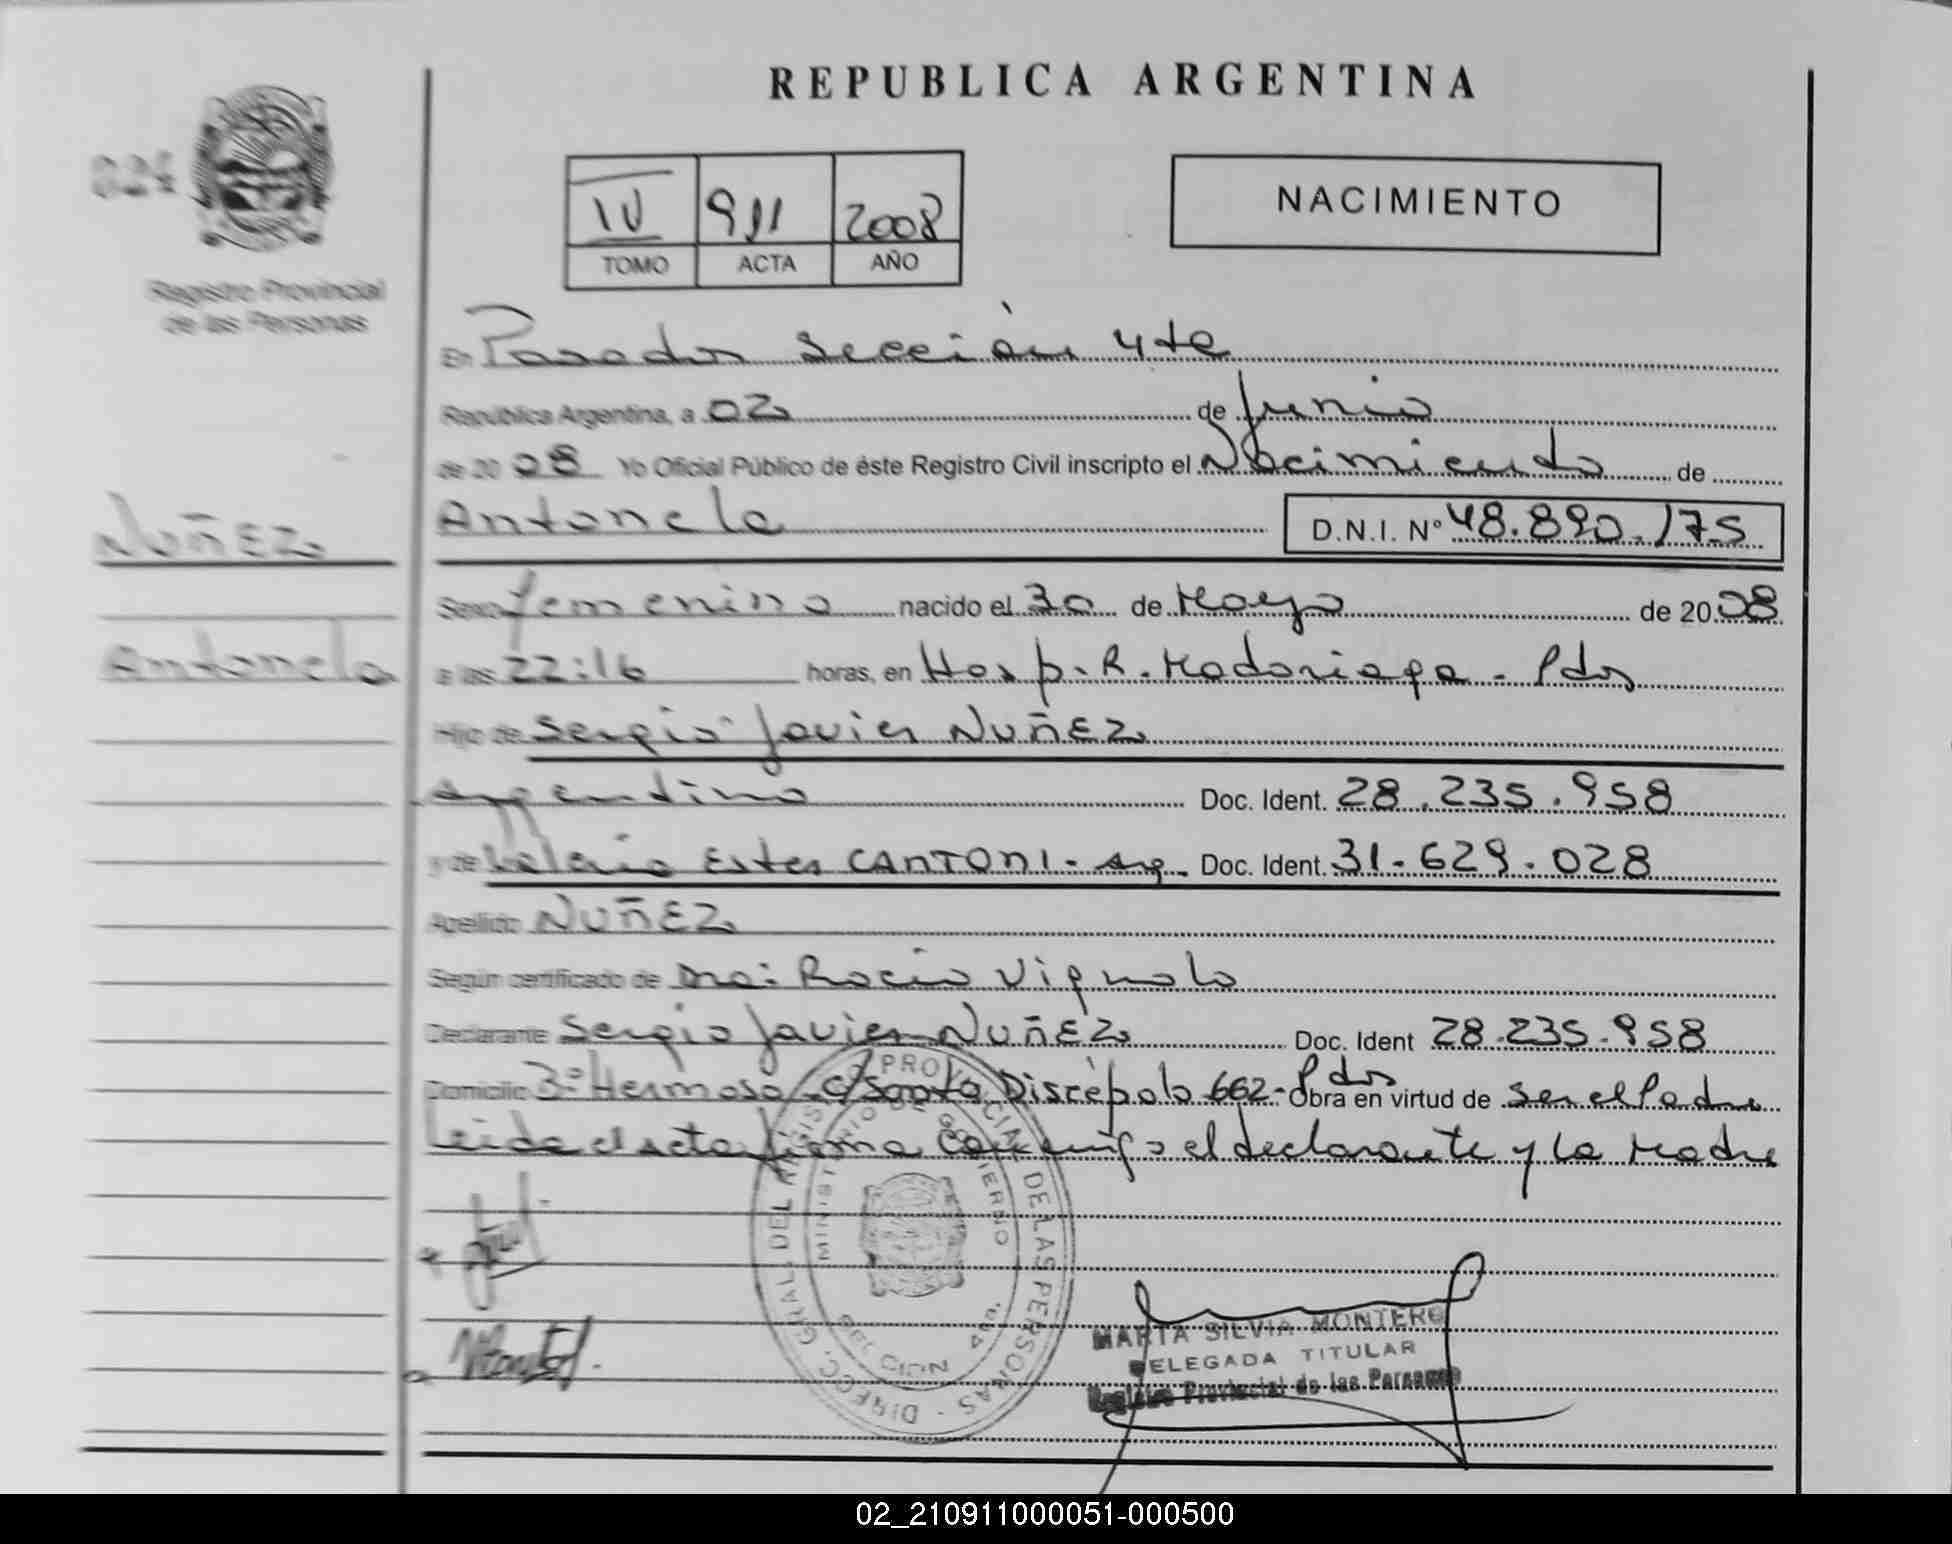 REPUBLICA ARGENTINA
024
IV 911 2008
TOMO ACTA AÑO
NACIMIENTO
Registro Provincial
de las Personas
En Posadas Sección 4ta
República Argentina, a 02 de Junio
de 2008 Yo Oficial Público de éste Registro Civil inscripto el Nacimiento de
NUÑEZ
Antonela D.N.I. Nº 48.890.175
Sexo femenino nacido el 30 de Mayo de 2008
Antonela
a las 22:16 horas, en Hosp. R. Madariaga - Pdas
Hijo de Sergio Javier NUÑEZ
Argentino Doc. Ident. 28.235.958
y de Valeria Ester CANTONI - Arg. Doc. Ident. 31.629.028
Apellido NUÑEZ
Según certificado de Dra: Rocío Vignolo
Declarante Sergio Javier NUÑEZ Doc. Ident 28.235.958
Domicilio 3º Hermosa - c/Santo Discépolo 662 - Pdas Obra en virtud de ser el Padre
Leida el acta firma conmigo el declarante y la Madre
DIRECC. GRAL. DEL REGISTRO PROVINCIAL DE LAS PERSONAS
MINISTERIO DE GOBIERNO
MARTA SILVIA MONTERO
DELEGADA TITULAR
Registro Provincial de las Personas
02_210911000051-000500